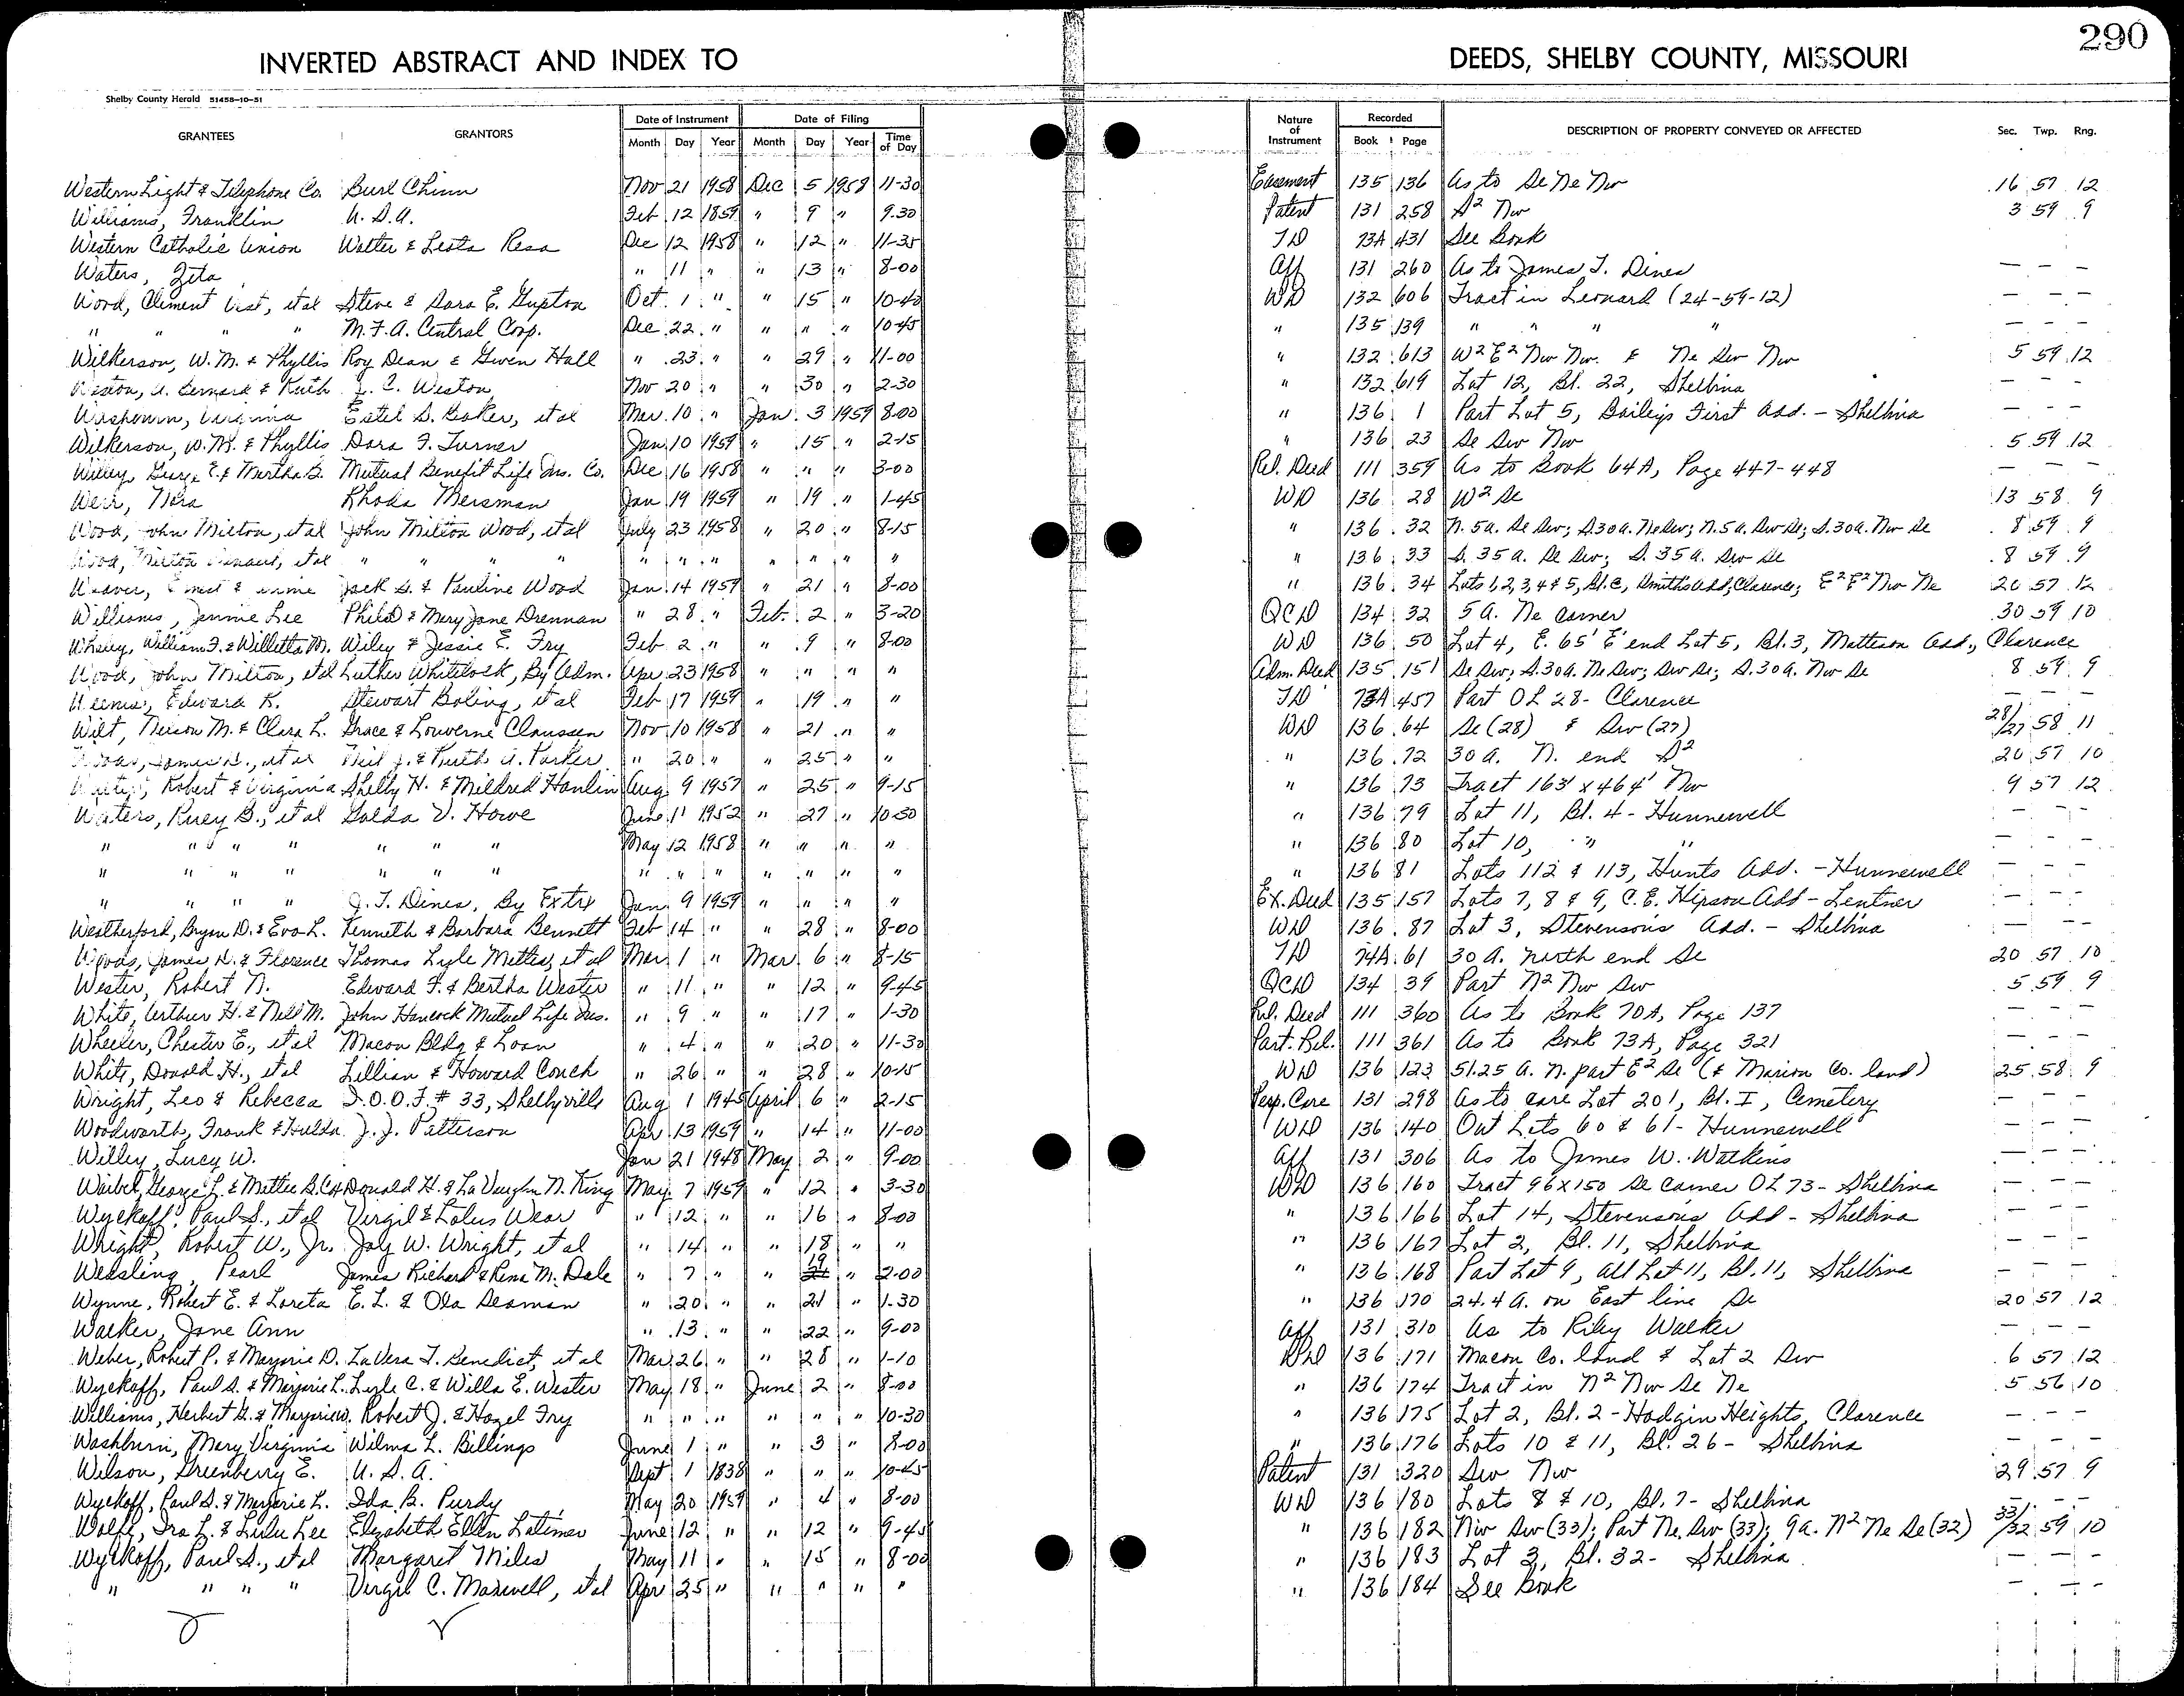 290
INVERTED ABSTRACT AND INDEX TO DEEDS, SHELBY COUNTY, MISSOURI
Shelby County Herald 51458-10-51
GRANTEES GRANTORS Date of Instrument Date of Filing Nature of Instrument Recorded DESCRIPTION OF PROPERTY CONVEYED OR AFFECTED Sec. Twp. Rng.
Month Day Year Month Day Year Time of Day Book Page
Western Light & Telephone Co. Burl Chinn Nov 21 1958 Dec 5 1958 11-30 Easement 135 136 As to Se Ne Nw 16 57 12
Williams, Franklin U. S. A. Feb 12 1859 " 9 " 9.30 Patent 131 258 S2 Nw 3 59 9
Western Catholic Union Walter & Leota Resa Dec 12 1958 " 12 " 11-35 TD 73A 431 See Book
Waters, Zeta " 11 " " 13 " 8-00 Aff 131 260 As to James T. Dines — — —
Wood, Clement Vest, et al Steve & Sara E. Gupton Oct. 1 " " 15 " 10-40 WD 132 606 Tract in Leonard (24-59-12) — — —
" " " " M.F.A. Central Corp. Dec 22 " " " " 10-45 " 135 139 " " " " — — —
Wilkerson, W. M. & Phyllis Roy Dean & Gwen Hall " 23 " " 29 " 11-00 " 132 613 W2 E2 Nw Nw & Ne Sw Nw 5 59 12
Weston, A. Bernard & Ruth J. C. Weston Nov 20 " " 30 " 2-30 " 132 619 Lot 12, Bl. 22, Shelbina — — —
Washburn, Virginia Estel S. Baker, et al Mar. 10 " Jan. 3 1959 8-00 " 136 1 Part Lot 5, Baileys First Add. - Shelbina — — —
Wilkerson, W. M. & Phyllis Dora F. Turner Jan 10 1959 " 15 " 2-15 " 136 23 Se Sw Nw 5 59 12
Willey, George E. & Martha B. Mutual Benefit Life Ins. Co. Dec 16 1958 " " " 3-00 Rel. Deed 111 359 As to Book 64A, Page 447-448 — — —
Weir, Nora Rhoda Mersman Jan 19 1959 " 19 " 1-45 WD 136 28 W2 Se 13 58 9
Wood, John Milton, et al John Milton Wood, et al July 23 1958 " 20 " 8-15 " 136 32 N. 5a. Se Sw; S.30a. Ne Sw; N.5a. Sw Se; S.30a. Nw Se 8 59 9
Wood, Milton et al " " " " " " " " " " " " 136 33 S. 35 a. Se Sw; S. 35 a. Sw Se 8 59 9
Weaver, Jack G. & Pauline Wood Jan. 14 1959 " 21 " 8-00 " 136 34 Lots 1, 2, 3, 4 & 5, Bl. C, Smiths Add, Clarence; E2 E2 Nw Ne 20 57 12
Williams, Jennie Lee Phil D & Mary Jane Drennan " 28 " Feb. 2 " 3-20 QCD 134 32 5 A. Ne corner 30 59 10
William F. & Willetta M. Wiley & Jessie E. Fry Feb 2 " " 9 " 8-00 WD 136 50 Lot 4, E. 65' E end Lot 5, Bl. 3, Matteson Add., Clarence
Wood, John Milton, et al Luther Whitelock, By Adm. Apr 23 1958 " " " " Adm. Deed 135 151 Se Sw; S.30a. Ne Sw; Sw Se; S.30a. Nw Se 8 59 9
Edward K. Stewart Boling, et al Feb 17 1959 " 19 " " TD 73A 457 Part OL 28 - Clarence — — —
Wilt, Nelson M. & Clara L. Grace & Louverne Claussen Nov 10 1958 " 21 " " WD 136 64 Se (28) & Sw (27) 28/27 58 11
Woods, James D., et al Neil J. & Ruth A. Parker " 20 " " 25 " " " 136 72 30 a. N. end S2 20 57 10
Robert & Virginia Shelby H. & Mildred Hanlin Aug 9 1957 " 25 " 9-15 " 136 73 Tract 163' x 464' Nw 9 57 12
Waters, Ruey B., et al Golda V. Howe June 11 1952 " 27 " 10-50 " 136 79 Lot 11, Bl. 4 - Hunnewell — — —
" " " " " " " May 12 1958 " " " " " 136 80 Lot 10, " " — — —
" " " " " " " " " " " " " " " 136 81 Lots 112 & 113, Hunts Add. - Hunnewell — — —
" " " " J. T. Dines, By Extrx Jan. 9 1959 " " " " Ex. Deed 135 157 Lots 7, 8 & 9, C. E. Hipson Add - Lentner — — —
Weatherford, Bryan D. & Eva L. Kenneth & Barbara Bennett Feb 14 " " 28 " 8-00 WD 136 87 Lot 3, Stevensons Add. - Shelbina — — —
Woods, James D. & Florence Thomas Lyle Mettes, et al Mar. 1 " Mar 6 " 8-15 TD 74A 61 30 A. north end Se 20 57 10
Wester, Robert N. Edward F. & Bertha Wester " 11 " " 12 " 9-45 QCD 134 39 Part N2 Nw Sw 5 59 9
White, Arthur H. & Nell M. John Hancock Mutual Life Ins. " 9 " " 17 " 1-30 Rel. Deed 111 360 As to Book 70A, Page 137 — — —
Wheeler, Chester E., et al Macon Bldg & Loan " 4 " " 20 " 11-30 Part. Rel. 111 361 As to Book 73A, Page 321 — — —
White, Donald H., et al Lillian & Howard Couch " 26 " " 28 " 10-15 WD 136 123 51.25 A. N. part E2 Se (& Marion Co. land) 25 58 9
Wright, Leo & Rebecca I.O.O.F. # 33, Shelbyville Aug 1 1945 April 6 " 2-15 Perp. Care 131 298 As to care Lot 201, Bl. I, Cemetery — — —
Woodworth, Frank & Hulda J. J. Patterson Apr 13 1959 " 14 " 11-00 WD 136 140 Out Lots 60 & 61 - Hunnewell — — —
Willey, Lucy W. Jan 21 1948 May 2 " 9-00 Aff 131 306 As to James W. Watkins — — —
Waibel, George L. & Mattie B. Donald H. & La Vaughn N. King May 7 1959 " 12 " 3-30 WD 136 160 Tract 96 x 150 Se corner OL 73 - Shelbina — — —
Wyckoff, Paul S., et al Virgil & Lolus Wear " 12 " " 16 " 8-00 " 136 166 Lot 14, Stevensons Add - Shelbina — — —
Wright, Robert W., Jr. Joly W. Wright, et al " 14 " " 18 " " " 136 167 Lot 2, Bl. 11, Shelbina — — —
Wessling, Pearl James Richard & Rena M. Dale " 7 " " 19 " 2-00 " 136 168 Part Lot 9, All Lot 11, Bl. 11, Shelbina — — —
Wynne, Robert E. & Loreta E. L. & Ola Seaman " 20 " " 21 " 1-30 " 136 170 24.4 A. on East line Se 20 57 12
Walker, Jane Ann " 13 " " 22 " 9-00 Aff 131 310 As to Riley Walker — — —
Weber, Robert P. & Marjorie D. LaVera T. Benedict, et al Mar 26 " " 28 " 1-10 WD 136 171 Macon Co. land & Lot 2 Sw 6 57 12
Wyckoff, Paul S. & Marjorie L. Lyle C. & Willa E. Wester May 18 " June 2 " 8-00 " 136 174 Tract in N2 Nw Se Ne 5 56 10
Williams, Herbert G. & Marjorie W. Robert J. & Hazel Fry " " " " " " 10-30 " 136 175 Lot 2, Bl. 2 - Hodgin Heights, Clarence — — —
Washburn, Mary Virginia Wilma L. Billings June 1 " " 3 " 8-00 " 136 176 Lots 10 & 11, Bl. 26 - Shelbina — — —
Wilson, Greenberry E. U. S. A. Sept 1 1838 " " " 10-45 Patent 131 320 Sw Nw 29 57 9
Wyckoff, Paul S. & Marjorie L. Ida B. Purdy May 20 1959 " 4 " 8-00 WD 136 180 Lots 8 & 10, Bl. 7 - Shelbina — — —
Wolfe, Ira L. & Lulu Lee Elizabeth Ellen Latimer June 12 " " 12 " 9-45 " 136 182 Nw Sw (33); Part Ne Sw (33); 9a. N2 Ne Se (32) 33/32 59 10
Wyckoff, Paul S., et al Margaret Miles May 11 " " 15 " 8-00 " 136 183 Lot 3, Bl. 32 - Shelbina — — —
" " " " Virgil C. Maxwell, et al Apr 25 " " " " " " 136 184 See Book — — —